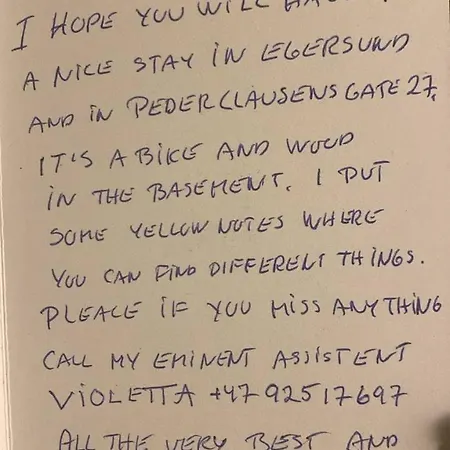 I HOPE YOU WILL HAVE
A NICE STAY IN EGERSUND
AND IN PEDER CLAUSENS GATE 27,
IT'S A BIKE AND WOOD
IN THE BASEMENT. I PUT
SOME YELLOW NOTES WHERE
YOU CAN FIND DIFFERENT THINGS.
PLEACE IF YOU MISS ANYTHING
CALL MY EMINENT ASSISTENT
VIOLETTA +47 92517697
ALL THE VERY BEST AND